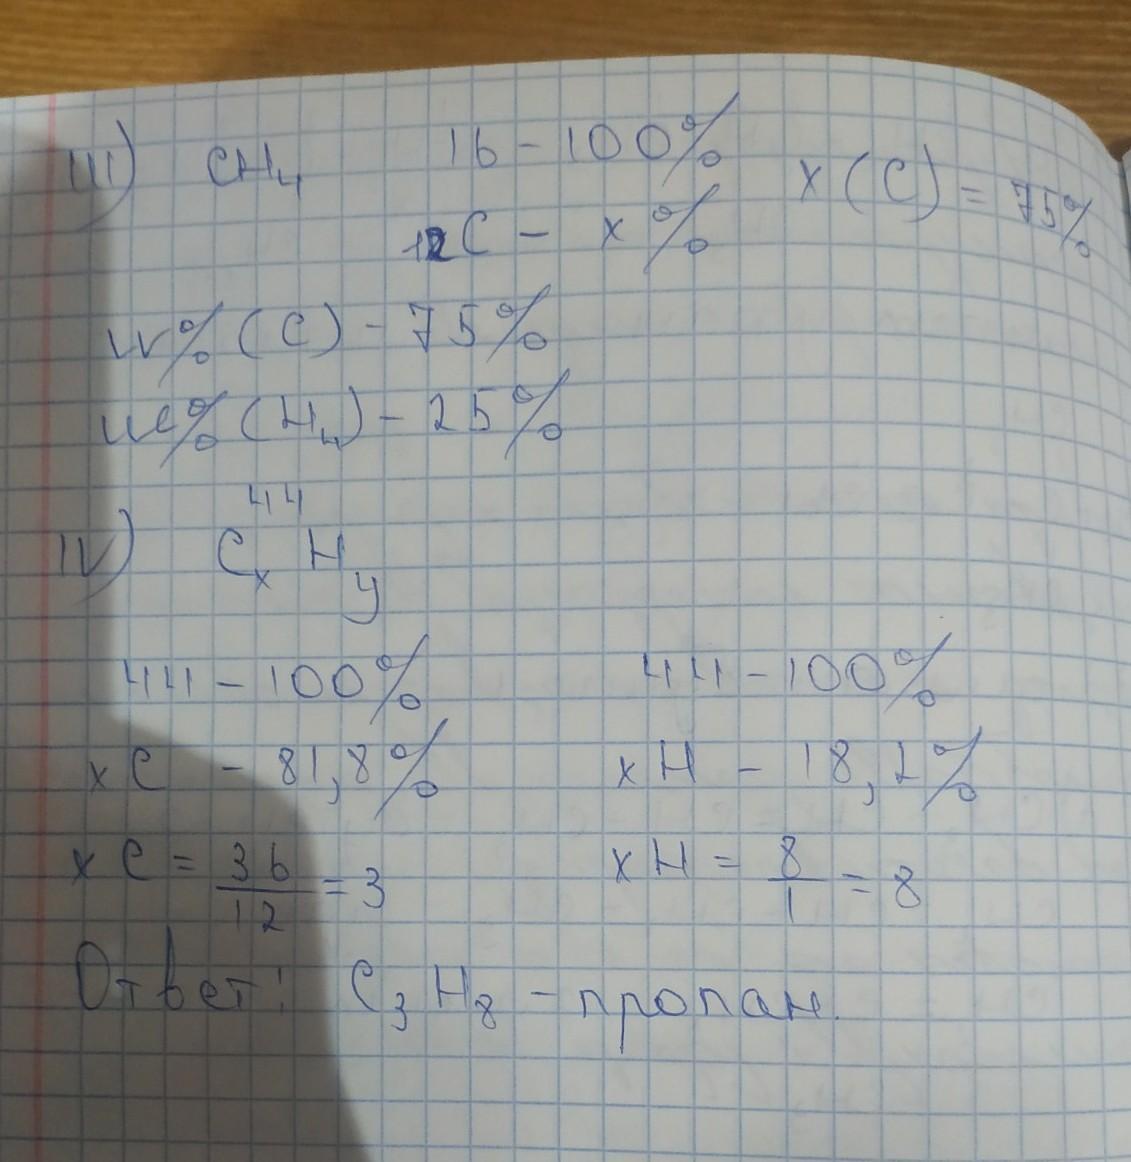 III) CH₄ 16 - 100% x (C) = 75%
12C - x%
w% (C) - 75%
w% (H₄) - 25%
44
IV) CₓHᵧ
44 - 100% 44 - 100%
xC - 81,8% xH - 18,2%
xC = 36/12 = 3 xH = 8/1 = 8
Ответ: C₃H₈ - пропан.